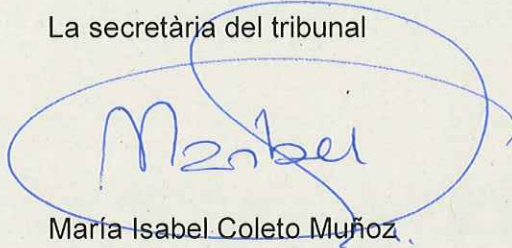 La secretària del tribunal
Maribel
María Isabel Coleto Muñoz